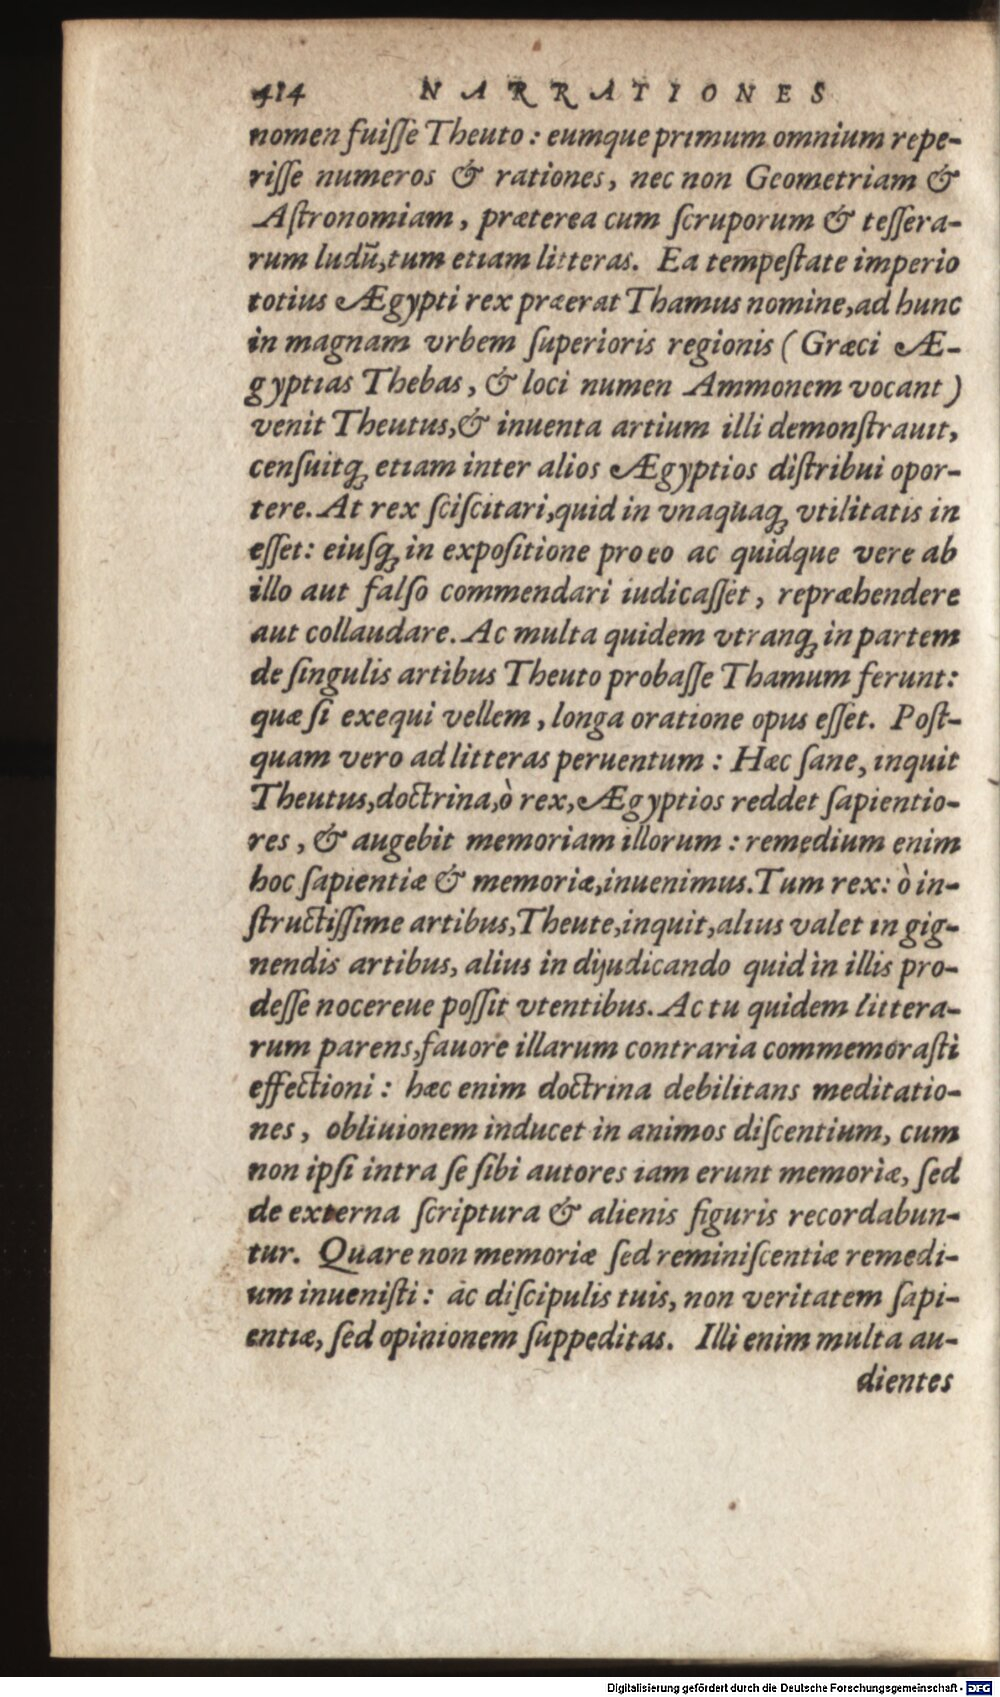 414 NARRATIONES
nomen fuiſſe Theuto : eumque primum omnium repe-
riſſe numeros & rationes, nec non Geometriam &
Aſtronomiam, præterea cum ſcruporum & teſſera-
rum ludũ, tum etiam litteras. Ea tempeſtate imperio
totius Ægypti rex præerat Thamus nomine, ad hunc
in magnam vrbem ſuperioris regionis ( Græci Æ-
gyptias Thebas, & loci numen Ammonem vocant )
venit Theutus, & inuenta artium illi demonſtrauit,
cenſuitqꝫ etiam inter alios Ægyptios diſtribui opor-
tere. At rex ſciſcitari, quid in vnaquaqꝫ vtilitatis in
eſſet: eiuſqꝫ in expoſitione pro eo ac quidque vere ab
illo aut falſo commendari iudicaſſet, repræhendere
aut collaudare. Ac multa quidem vtranqꝫ in partem
de ſingulis artibus Theuto probaſſe Thamum ferunt:
quæ ſi exequi vellem, longa oratione opus eſſet. Poſt-
quam vero ad litteras peruentum : Hæc ſane, inquit
Theutus, doctrina, ò rex, Ægyptios reddet ſapientio-
res, & augebit memoriam illorum : remedium enim
hoc ſapientiæ & memoriæ, inuenimus. Tum rex: ò in-
ſtructiſſime artibus, Theute, inquit, alius valet in gig-
nendis artibus, alius in dijudicando quid in illis pro-
deſſe nocereue poſſit vtentibus. Ac tu quidem littera-
rum parens, fauore illarum contraria commemoraſti
effectioni : hæc enim doctrina debilitans meditatio-
nes, obliuionem inducet in animos diſcentium, cum
non ipſi intra ſe ſibi autores iam erunt memoriæ, ſed
de externa ſcriptura & alienis figuris recordabun-
tur. Quare non memoriæ ſed reminiſcentiæ remedi-
um inueniſti : ac diſcipulis tuis, non veritatem ſapi-
entiæ, ſed opinionem ſuppeditas. Illi enim multa au-
dientes
Digitalisierung gefördert durch die Deutsche Forschungsgemeinschaft - DFG